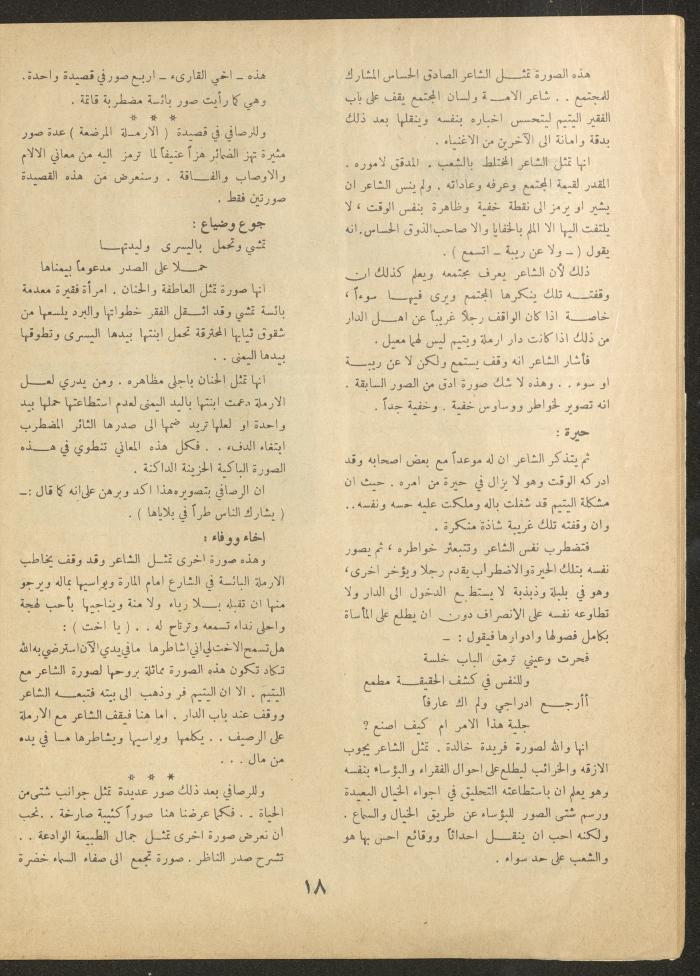 هذه الصورة تمثل الشاعر الصادق الحساس المشارك
للمجتمع . . شاعر الامة ولسان المجتمع يقف على باب
الفقير اليتيم ليتحسس اخباره بنفسه وينقلها بعد ذلك
بدقة وامانة الى الآخرين من الاغنياء .
انها تمثل الشاعر المختلط بالشعب . المدقق لاموره .
المقدر لقيمة المجتمع وعرفه وعاداته . ولم ينس الشاعر ان
يشير او يرمز الى نقطة خفية وظاهرة بنفس الوقت ، لا
يلتفت اليها الا الملم بالخفايا والا صاحب الذوق الحساس. انه
يقول ( ـ ولا عن ريبة ـ اتسمع ) .
ذلك لأن الشاعر يعرف مجتمعه ويعلم كذلك ان
وقفته تلك ينكرها المجتمع ويرى فيها سوءاً ،
خاصة اذا كان الواقف رجلاً غريباً عن اهل الدار
من ذلك اذا كانت دار ارملة ويتيم ليس لهما معيل .
فأشار الشاعر انه وقف يستمع ولكن لا عن ريبة
او سوء . . وهذه لا شك صورة ادق من الصور السابقة .
انه تصوير لخواطر ووساوس خفية . وخفية جداً .
حيرة :
ثم يتذكر الشاعر ان له موعداً مع بعض اصحابه وقد
ادركه الوقت وهو لا يزال في حيرة من امره . حيث ان
مشكلة اليتيم قد شغلت باله وملكت عليه حسه ونفسه..
وان وقفته تلك غريبة شاذة منكرة .
فتضطرب نفس الشاعر وتتبعثر خواطره ، ثم يصور
نفسه بتلك الحيرة والاضطراب يقدم رجلا ويؤخر اخرى،
وهو في بلبلة وذبذبة لا يستطيع الدخول الى الدار ولا
تطاوعه نفسه على الأنصراف دون ان يطلع على المأساة
بكامل فصولها وادوارها فيقول : ـ
فحرت وعيني ترمق الباب خلسة
وللنفس في كشف الحقيقة مطمع
أأرجع ادراجي ولم اك عارفاً
جلية هذا الامر ام كيف اصنع ؟
انها والله لصورة فريدة خالدة . تمثل الشاعر يجوب
الازقه والخرائب ليطلع على احوال الفقراء والبؤساء بنفسه
وهو يعلم ان باستطاعته التحليق في اجواء الخيال البعيدة
ورسم شتى الصور للبؤساء عن طريق الخيال والسماع .
ولكنه احب ان ينقل احداثاً ووقائع احس بها هو
والشعب على حد سواء .
هذه ـ اخي القارىء ـ اربع صور في قصيدة واحدة .
وهي كما رأيت صور بائسة مضطربة قاتمة .
* * *
وللرصافي في قصيدة ( الارملة المرضعة ) عدة صور
مثيرة تهز الضمائر هزاً عنيفاً لما ترمز اليه من معاني الالام
والاوصاب والفاقة . وسنعرض من هذه القصيدة
صورتين فقط .
جوع وضياع :
تمشي وتحمل باليسرى وليدتها
حملا على الصدر مدعوماً بيمناها
انها صورة تمثل العاطفة والحنان . امرأة فقيرة معدمة
بائسة تمشي وقد اثقل الفقر خطواتها والبرد يلسعها من
شقوق ثيابها المخترقة تحمل ابنتها بيدها اليسرى وتطوقها
بيدها اليمنى . .
انها تمثل الحنان باجلى مظاهره . ومن يدري لعل
الارملة دعمت ابنتها باليد اليمنى لعدم استطاعتها حملها بيد
واحدة او لعلها تريد ضمها الى صدرها الثائر المضطرب
ابتغاء الدفء . . فكل هذه المعاني تنطوي في هذه
الصورة الباكية الحزينة الداكنة .
ان الرصافي بتصويره هذا اكد وبرهن على انه كما قال :ـ
( يشارك الناس طراً في بلاياها ) .
اخاء ووفاء :
وهذه صورة اخرى تمثل الشاعر وقد وقف يخاطب
الارملة البائسة في الشارع امام المارة ويواسيها بماله ويرجو
منها ان تقبله بلا رياء ولا منة ويناجيها بأحب لهجة
واحلى نداء تسمعه وترتاح له . . ( يا اخت ) :
هل تسمح الاخت لي اني اشاطرها ما في يدي الآن استرضي به الله
تكاد تكون هذه الصورة مماثلة بروحها لصورة الشاعر مع
اليتيم . الا ان اليتيم فر وذهب الى بيته فتبعه الشاعر
ووقف عند باب الدار . اما هنا فيقف الشاعر مع الارملة
على الرصيف . . يكلمها ويواسيها ويشاطرها ما في يده
من مال . . .
* * *
وللرصافي بعد ذلك صور عديدة تمثل جوانب شتى من
الحياة . . فكما عرضنا هنا صوراً كئيبة صارخة . . نحب
أن نعرض صورة اخرى تمثل جمال الطبيعة الوادعة . .
تشرح صدر الناظر . صورة تجمع الى صفاء السماء خضرة
١٨